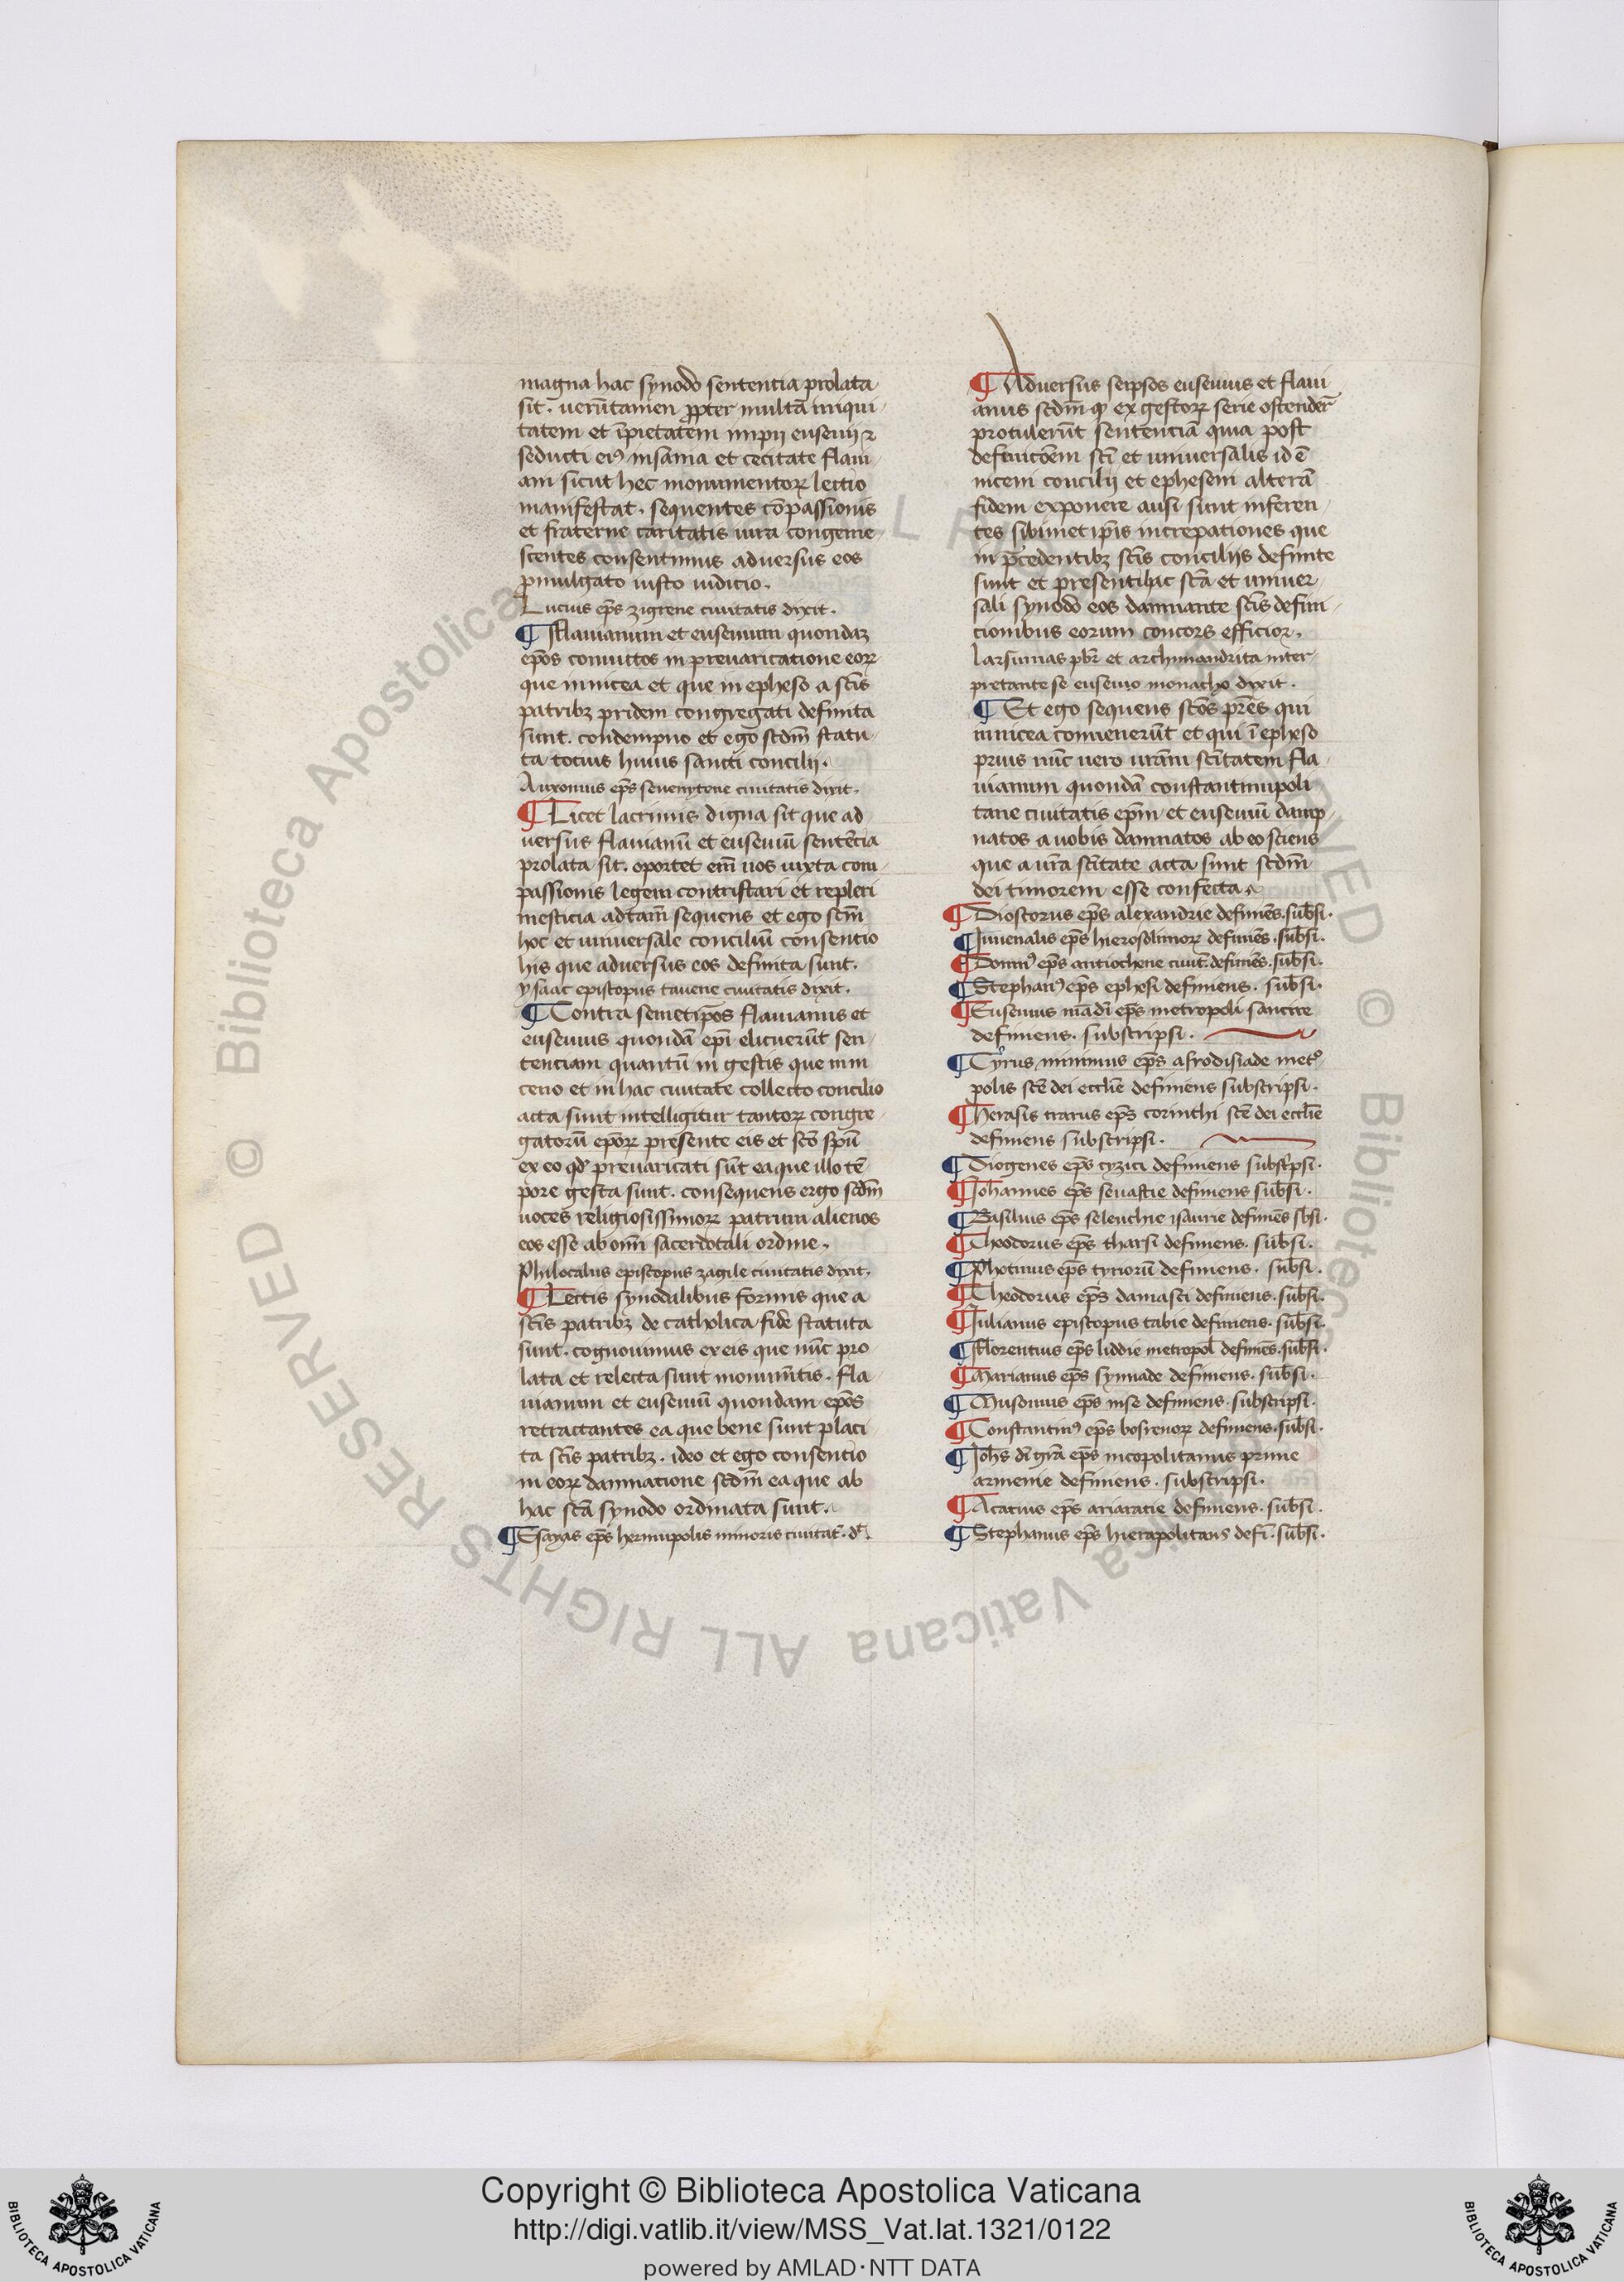 magna hac synodo sententia prolata
sit. uerūtamen ꝓpter multā iniqui
tatem et īpietatem impii euseuij ⁊
seducti eiꝰ insania et cecitate flaui
ani sicut hec monumentoꝝ lectio
manifestat. sequentes cōpassionis
et fraterne caritatis iura congeme
scentes consentimus aduersus eos
ꝓmulgato iusto iudicio.
Lucius ep̄s zigrene ciuitatis dixit.
¶ Flauianum et euseuium quondaꝫ
ep̄os conuictos in preuaricatione eoꝝ
que in nicea et que in epheso a sc̄is
patribꝫ pridem congregati definita
sunt. condempno et ego scd̄m statu
ta tocius huius sancti concilij.
Auxonius ep̄s seuenytene ciuitatis dixit.
¶ Licet lacrimis digna sit que ad
uersus flauianū et euseuiū sentētia
prolata sit. oportet em̄ nos iuxta com
passionis legem contristari et repleri
mesticia adtam̄ sequens et ego sc̄m
hoc et uniuersale conciliū consentio
his que aduersus eos definita sunt.
ysaac episcopus tauene ciuitatis dixit.
¶ Contra semetip̄os flauianus et
euseuius quondā ep̄i elicuerūt sen
tenciam quantū in gestis que in ni
ceno et in hac ciuitate collecto concilio
acta sunt intelligitur tantoꝝ congre
gatorū ep̄oꝝ presente eis et sc̄o sp̄u
ex eo qd̄ preuaricati sūt ea que illo tē
pore gesta sunt. consequens ergo scd̄m
uoces religiosissimoꝝ patrum alienos
eos esse ab om̄i sacerdotali ordine.
Philocalus episcopus zagile ciuitatis dixit.
¶ Lectis synodalibus formis que a
sc̄is patribꝫ de catholica fide statuta
sunt. cognouimus ex eis que nūc pro
lata et relecta sunt monum̄tis. fla
uianum et euseuiū quondam ep̄os
retractantes ea que bene sunt placi
ta sc̄is patribꝫ. ideo et ego consentio
in eoꝝ damnatione scd̄m ea que ab
hac sc̄a synodo ordinata sunt.
¶ Esayas ep̄s hermipolis minoris ciuitat̄. dt̄.
¶ Aduersus seipsos euseuius et flaui
anus scd̄m ꝙ ex gestoꝝ serie ostendit̄
protulerūt sentenciā quia post
definicōem sc̄i et uniuersalis id ē
nicem concilij et ephesem alterā
fidem exponere ausi sunt inferen
tes sibimetip̄is increpationes que
in p̄cedentibꝫ sc̄is concilijs definite
sunt et presenti hac sc̄a et uniuer
sali synodo eos damnante sc̄is defini
cionibus eorum concors efficior.
larsumas pb̄r et archimandrita inter
pretante se euseuio monacho dixit.
¶ Et ego sequens sc̄os pr̄es qui
in nicea conuenerūt et qui ī epheso
prius nūc uero ur̄am sc̄itatem fla
uianum quondā constantinupoli
tane ciuitatis ep̄m et euseuiū damp
natos a uobis damnatos ab eo sciens
que a ur̄a sc̄itate acta sunt scd̄m
dei timorem esse confecta.
¶ Dioscorus ep̄s alexandrie definiēs. sub̄si.
¶ Iuuenalis ep̄s hierosolimoꝝ definiēs. sub̄si.
¶ Domnꝰ ep̄s antiochene ciuit̄. definiēs. sub̄si.
¶ Stephanꝰ ep̄s ephesi definiens. sub̄si.
¶ Euseuius mādi ep̄s metropoli sancire
definiens. subscripsi.
¶ Cyrus minimus ep̄s afrodisiade metº
polis sc̄e dei eccl̄ie definiens subscripsi.
¶ herasis trarus ep̄s corinthi sc̄e dei eccl̄ie
definiens subscripsi.
¶ Diogenes ep̄s cyzici definiens subsc̄psi.
¶ Ioh̄annes ep̄s seuastie definiens sub̄si.
¶ Basilius ep̄s seleuchie isaurie definiēs sb̄si.
¶ Theodorus ep̄s tharsi definiens. sub̄si.
¶ Photinus ep̄s tyriorū definiens. sub̄si.
¶ Theodorus ep̄s damasci definiens. sub̄si.
¶ Iulianus episcopus tabie definiens. sub̄si.
¶ Florentius ep̄s liddie metropol̄ definiēs. sub̄si.
¶ Marianus ep̄s synnade definiens. sub̄si.
¶ Musonius ep̄s nise definiens. subscripsi.
¶ Constantinꝰ ep̄s bosrenoꝝ definiens. sub̄si.
¶ Ioh̄s di gr̄a ep̄s nicopolitanus prime
armenie definiens. subscripsi.
¶ Acatius ep̄s ariaratie definiens. sub̄si.
¶ Stephanus ep̄s hierapolitanꝰ defi. sub̄si.
© Biblioteca Apostolica Vaticana ALL RIGHTS RESERVED
Copyright © Biblioteca Apostolica Vaticana
http://digi.vatlib.it/view/MSS_Vat.lat.1321/0122
powered by AMLAD·NTT DATA
BIBLIOTECA APOSTOLICA VATICANA
BIBLIOTECA APOSTOLICA VATICANA